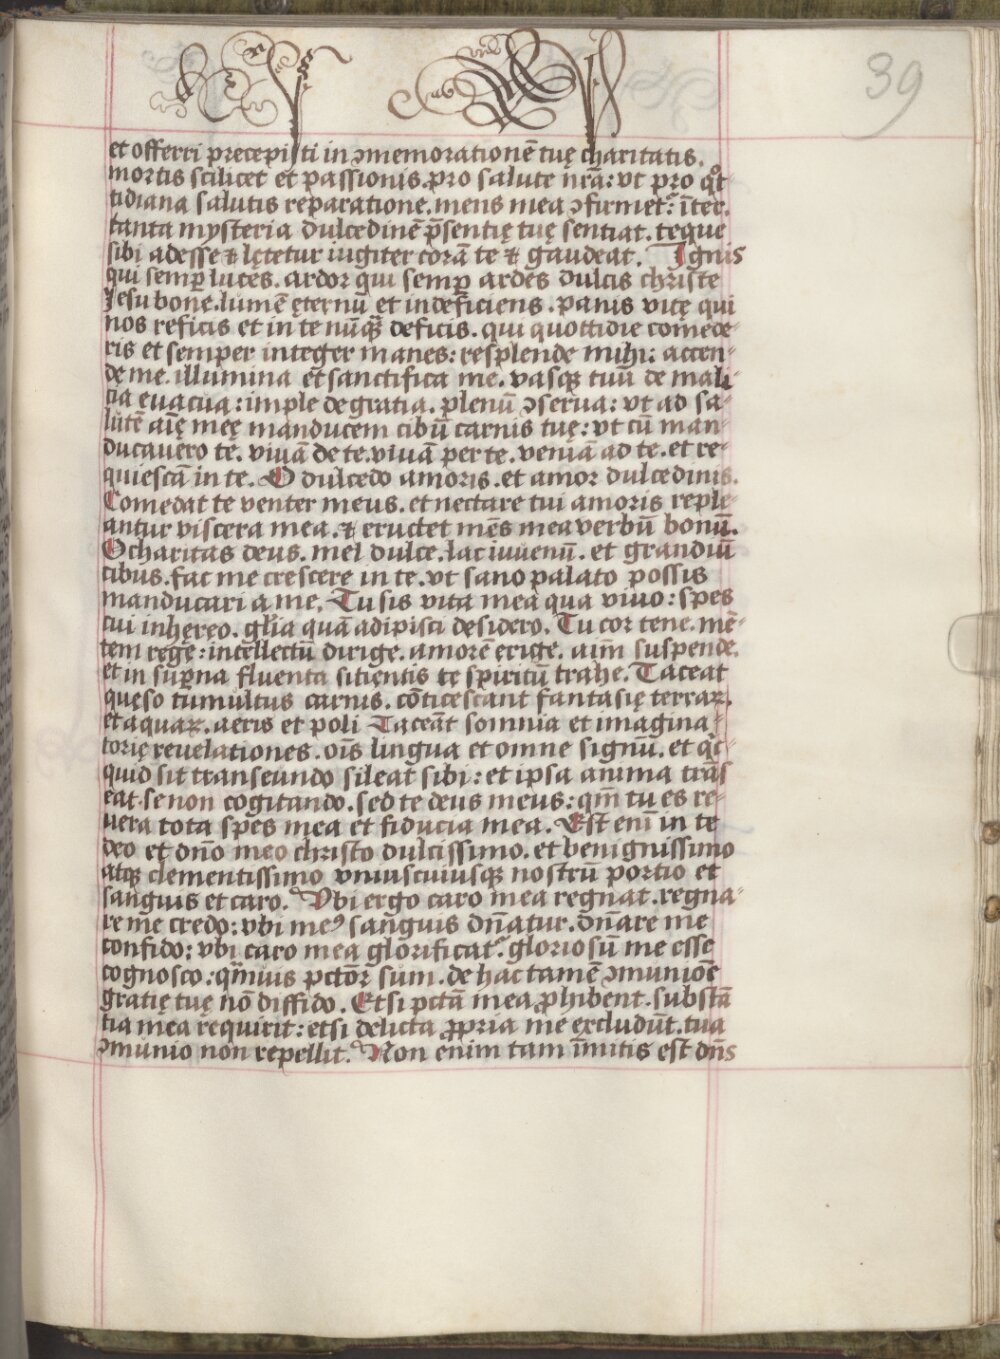 39
et offerri precepisti in ꝯmemorationē tuę charitatis.
mortis scilicet et passionis. pro salute nrā: vt pro qͦt
tidiana salutis reparatione. mens mea ꝯfirmetᷣ. īter.
tanta mysteria dulcedinē p̄sentię tuę sentiat. teque
sibi adesse ⁊ lętetur iugiter corā te ⁊ gaudeat. Ignis
qui semꝑ luces. ardor qui semꝑ ardes dulcis christe
Jesu bone. lumē ęternū et indeficiens. panis vitę qui
nos reficis et in te nūqꝫ deficis. qui quottidie comede-
ris et semper integer manes: resplende mihi: accen-
de me. illumina et sanctifica me. vasqꝫ tuū de mali-
cia euacua: imple de gratia. plenū ꝯserua: vt ad sa-
lutē aīę meę manducem cibū carnis tuę: vt cū man-
ducauero te. viuā de te. viuā per te. veniā ad te. et re-
quiescā in te. O dulcedo amoris. et amor dulcedinis.
Comedat te venter meus. et nectare tui amoris reple-
antur viscera mea. ⁊ eructet mēs mea verbū bonū.
O charitas deus. mel dulce. lac iuuenū. et grandiū
cibus. fac me crescere in te. vt sano palato possis
manducari a me. Tu sis vita mea qua viuo: spes
cui inhęreo. glīa quā adipisci desidero. Tu cor tene. mē-
tem rege: intellectū dirige. amorē erige. aīm suspende.
et in suꝑna fluenta sitientis te spiritū trahe. Taceat
quęso tumultus carnis. cōticescant fantasię terraꝝ.
et aquaꝝ. aeris et poli Taceāt somnia et imagina-
torię reuelationes. oīs lingua et omne signū. et qͥc-
quid sit transeundo sileat sibi: et ipsa anima trās
eat. se non cogitando. sed te deus meus: qm̄ tu es re-
uera tota spes mea et fiducia mea. Est enī in te
deo et dn̄o meo christo dulcissimo. et benignissimo
atqꝫ clementissimo vniuscuiusqꝫ nostrū portio et
sanguis et caro. Vbi ergo caro mea regnat. regna-
re me credo: vbi meꝰ sanguis dn̄atur. dn̄are me
confido: vbi caro mea glorificatᷣ. gloriosū me esse
cognosco: qͣmuis pctōr sum. de hac tamē ꝯmuniōe
gratię tuę nō diffido. Et si pctā mea ꝓhibent. substā
tia mea requirit: et si delicta ꝓpria me excludūt. tua
ꝯmunio non repellit. Non enim tam īmitis est dn̄s